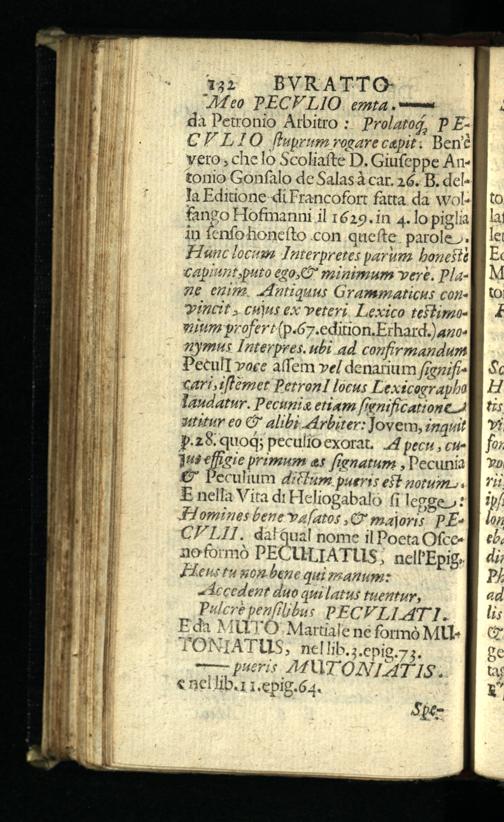 132 BVRATTO
Meo PECVLIO emta. ——
da Petronio Arbitro: Prolatoq́; PE-
CVLIO ſtuprum rogare cœpit. Ben'è
vero, che lo Scoliaſte D. Giuſeppe An-
tonio Gonſalo de Salas à car. 26. B. del-
la Editione di Francofort fatta da wol-
fango Hofmanni il 1629. in 4. lo piglia
in ſenſo honeſto con queſte parole.
Hunc locum Interpretes parùm honeſtè
capiunt, puto ego, & minimum verè. Pla-
ne enim Antiquus Grammaticus con-
vincit, cujus ex veteri Lexico teſtimo-
nium profert (p.67.edition.Erhard.) ano-
nymus Interpres. ubi ad confirmandum
PeculI voce aſſem vel denarium ſignifi-
cari, iſtèmet PetronI locus Lexicographo
laudatur. Pecuniæ etiam ſignificatione
utitur eo & alibi Arbiter: Jovem, inquit
p.28. quoq; peculio exorat. A pecu, cu-
jus effigie primum æs ſignatum, Pecunia
& Peculium dictum pueris eſt notum.
E nella Vita di Heliogabalo ſi legge:
Homines bene vaſatos, & majoris PE-
CVLII. dal qual nome il Poeta Oſce-
no formò PECULIATUS, nell'Epig.
Heus tu non bene qui manum:
Accedent duo qui latus tuentur,
Pulcrè penſilibus PECVLIATI.
E da MUTO Martiale ne formò MU-
TONIATUS, nel lib.3.epig.73.
—— pueris MUTONIATIS.
e nel lib.11.epig.64.
Spe-